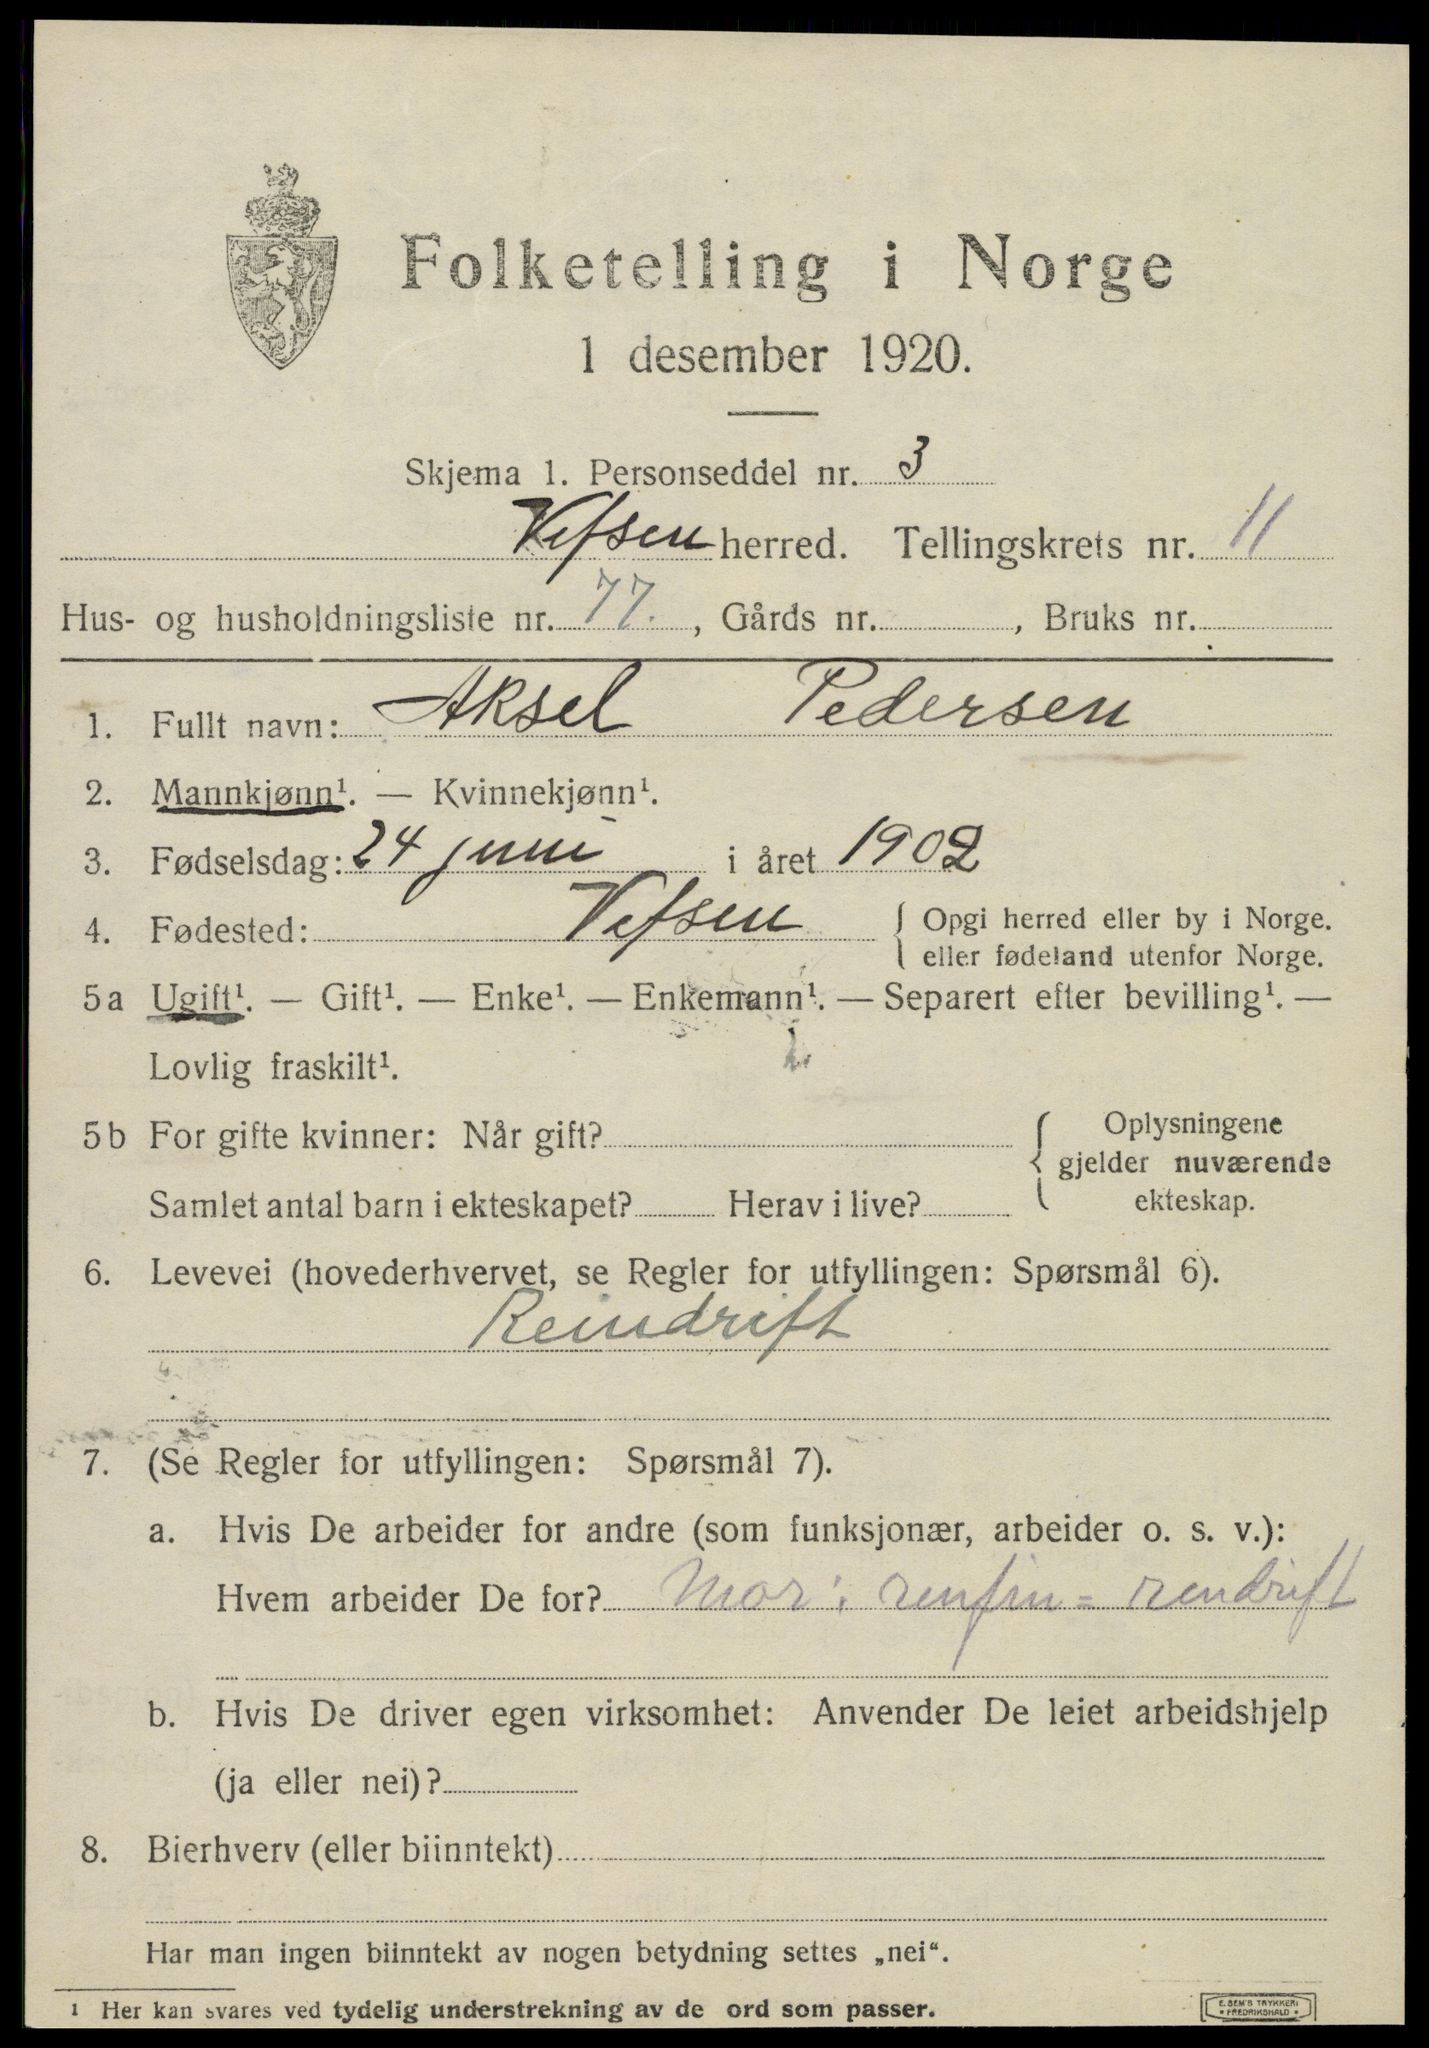 Folketelling i Norge
1 desember 1920.
Skjema 1. Personseddel nr. 3
Vefsen herred. Tellingskrets nr. 11
Hus- og husholdningsliste nr. 77. , Gårds nr. , Bruks nr.
1. Fullt navn: Aksel Pedersen
2. Mannkjønn¹. — Kvinnekjønn¹.
3. Fødselsdag: 24 juni i året 1902
4. Fødested: Vefsen { Opgi herred eller by i Norge.
eller fødeland utenfor Norge.
5a Ugift¹. — Gift¹. — Enke¹. — Enkemann¹. — Separert efter bevilling¹. —
Lovlig fraskilt¹.
5b For gifte kvinner: Når gift? { Oplysningene
gjelder nuværende
Samlet antal barn i ekteskapet? Herav i live? ekteskap.
6. Levevei (hovederhvervet, se Regler for utfyllingen: Spørsmål 6).
Reindrift
7. (Se Regler for utfyllingen: Spørsmål 7).
a. Hvis De arbeider for andre (som funksjonær, arbeider o. s. v.):
Hvem arbeider De for? Mor: rendrift
b. Hvis De driver egen virksomhet: Anvender De leiet arbeidshjelp
(ja eller nei)?
8. Bierhverv (eller biinntekt)
Har man ingen biinntekt av nogen betydning settes „nei“.
¹ Her kan svares ved tydelig understrekning av de ord som passer.
E. SEM'S TRYKKERI
• FREDRIKSHALD •